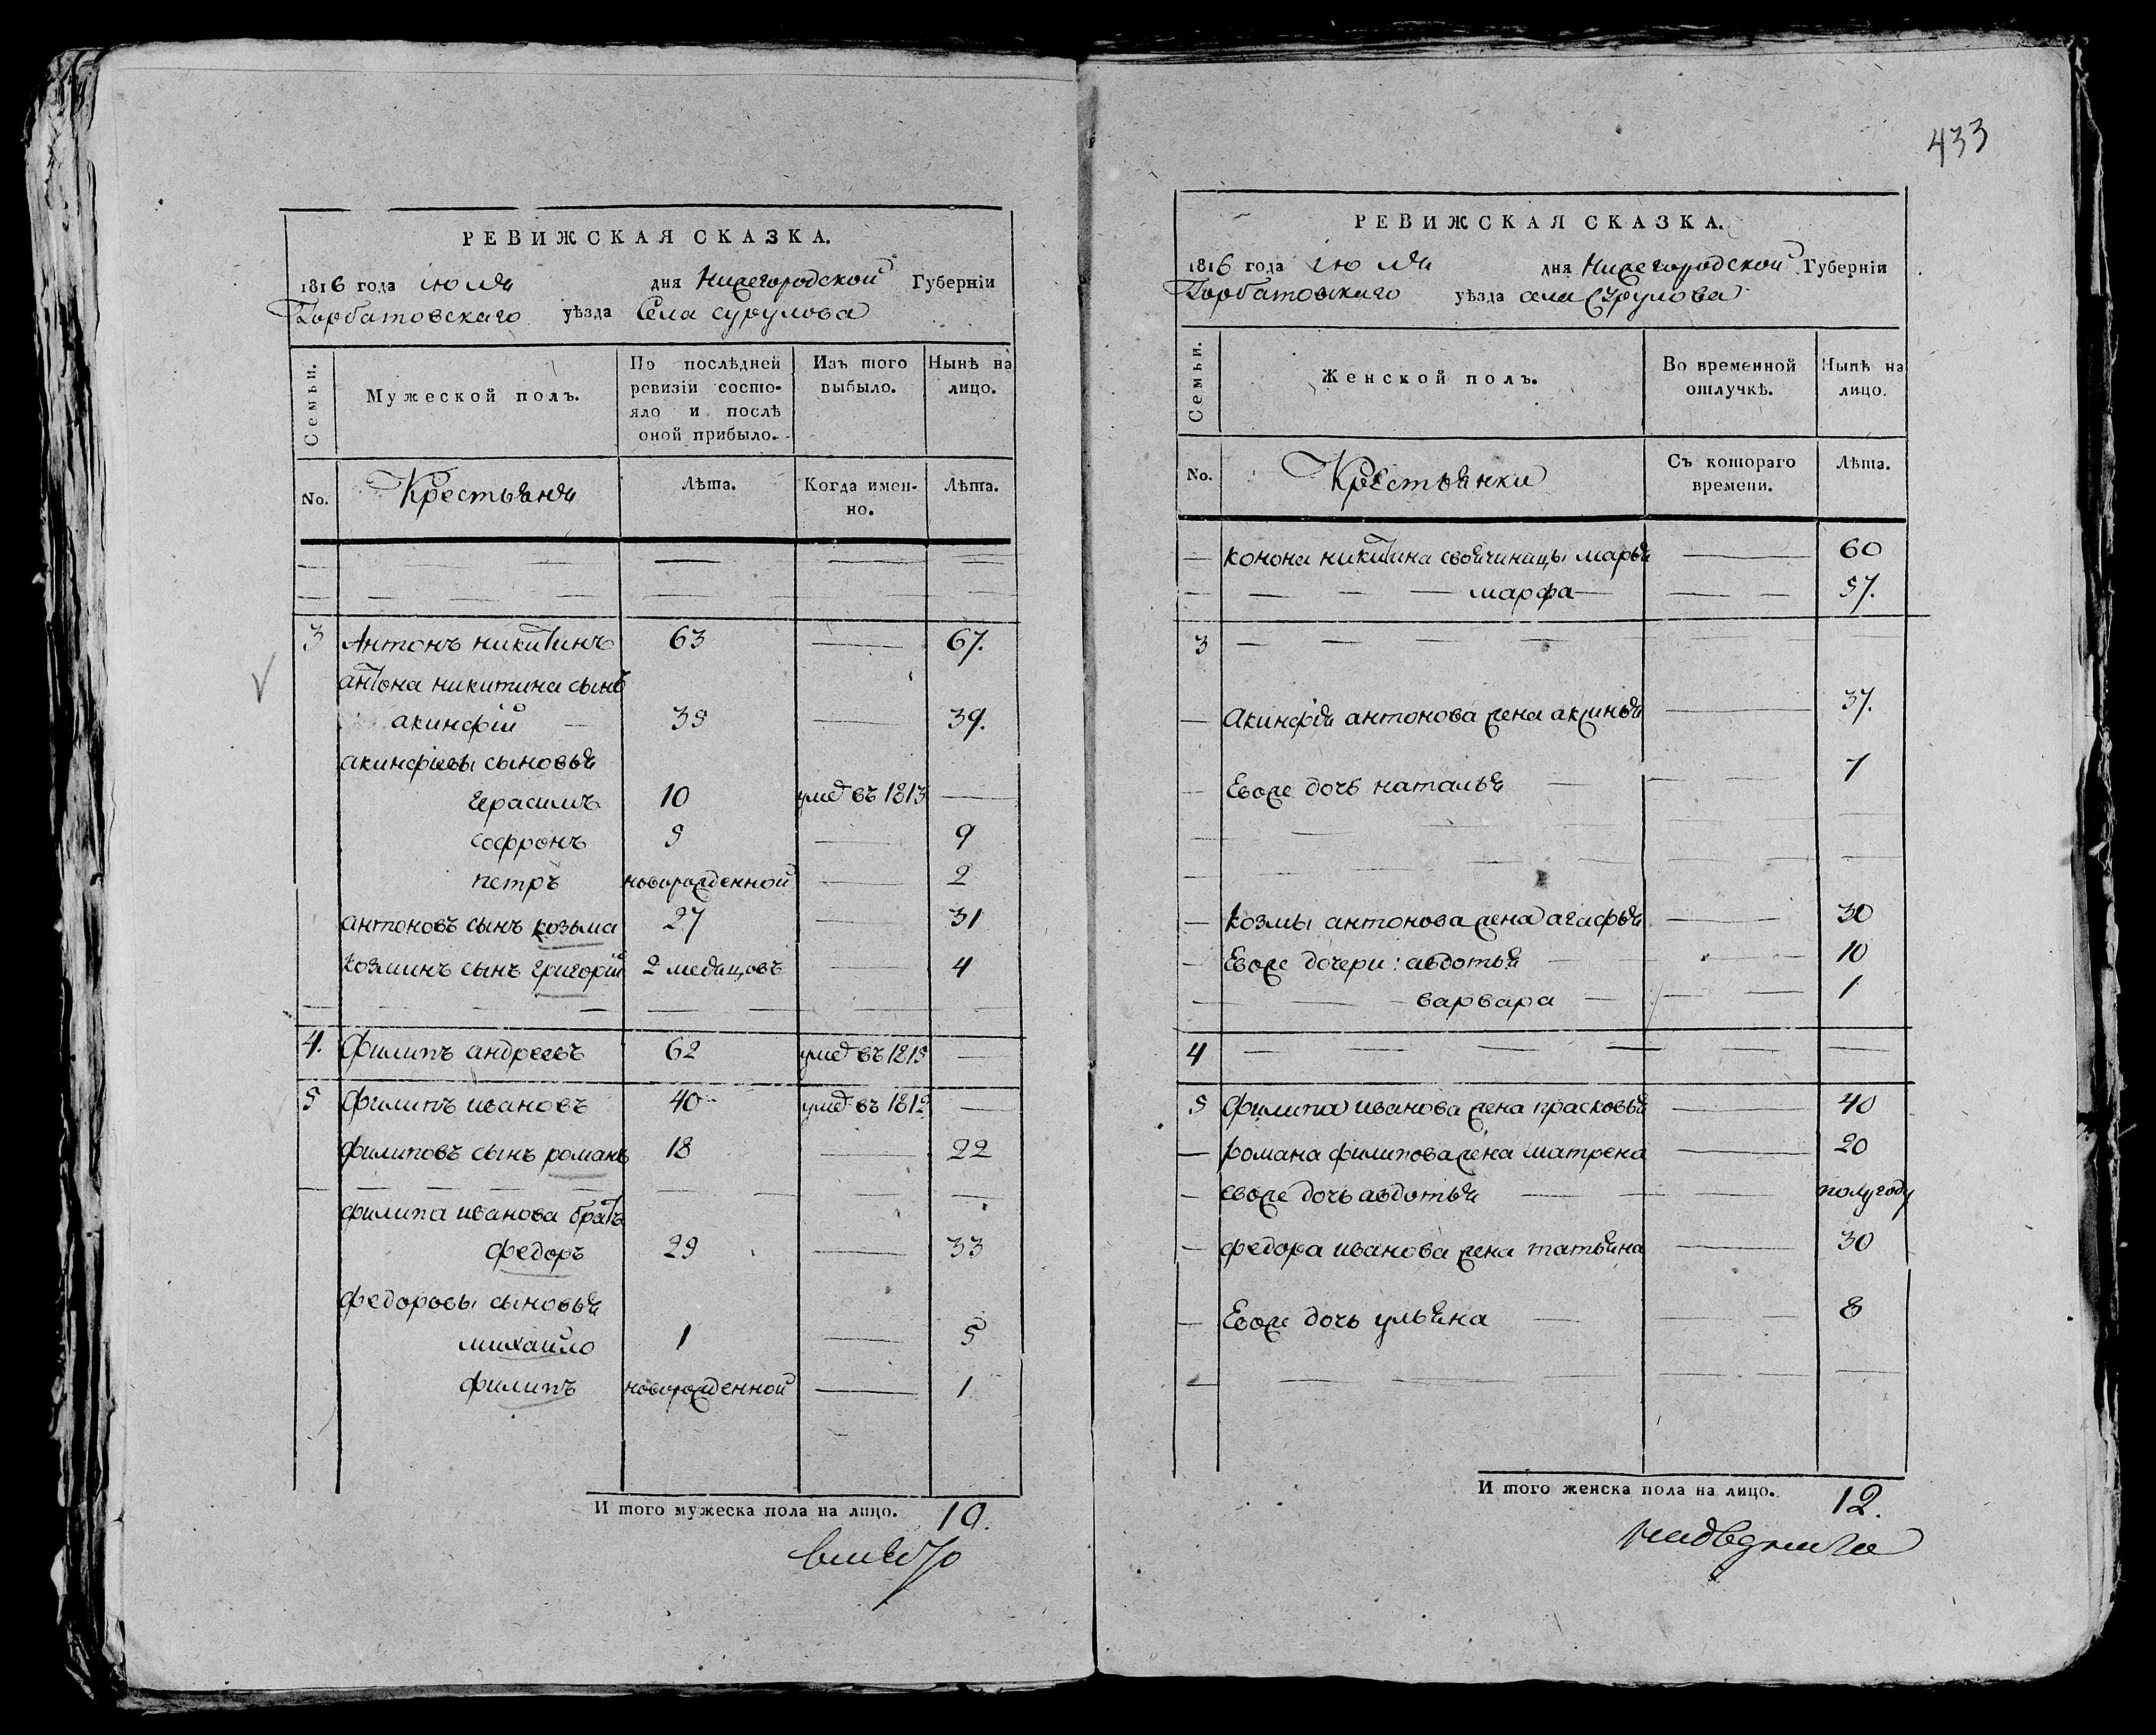 433
РЕВИЖСКАЯ СКАЗКА.
1816 года июля дня Нижегородской Губерніи
Горбатовскаго уѣзда Села сурулова
Семьи.
Мужеской полъ.
По послѣдней ревизіи состояло и послѣ оной прибыло.
Изъ того выбыло.
Нынѣ на лицо.
No.
Крестьяня
Лѣта.
Когда именно.
Лѣта.
3 Антонъ никитинъ 63 — 67.
антона никитина сынъ
акинфій 35 — 39.
акинфіевы сыновья
герасимъ 10 умре въ 1813 —
софронъ 5 — 9
петръ новорожденной — 2
антоновъ сынъ козьма 27 — 31
козминъ сынъ григорій 2 медицовъ — 4
4. Филипъ андреевъ 62 умре въ 1815 —
5 Филипъ ивановъ 40 умре въ 1812 —
филиповъ сынъ романъ 18 — 22
филипа иванова братъ
федоръ 29 — 33
федоровы сыновья
михайло 1 — 5
филипъ новорожденной — 1
И того мужеска пола на лицо. 10.
РЕВИЖСКАЯ СКАЗКА.
1816 года июля дня Нижегородской Губерніи
Горбатовскаго уѣзда села Сурулова
Семьи.
Женской полъ.
Во временной отлучкѣ.
Нынѣ на лицо.
No.
Крестьянки
Съ котораго времени.
Лѣта.
— конона никитина своячиницы марья — 60
— марфа — 57.
3 —
— Акинфія антонова жена аксинья — 37.
— Евоже дочь наталья — 7
— козмы антонова жена агафья — 30
— Евоже дочери: авдотья — 10
— варвара — 1
4 —
5 Филипа иванова жена прасковья — 40
— романа филипова жена матрена — 20
— евоже дочь авдотья — полугоду
— федора иванова жена татьяна — 30
— Евоже дочь ульяна — 8
И того женска пола на лицо. 12.